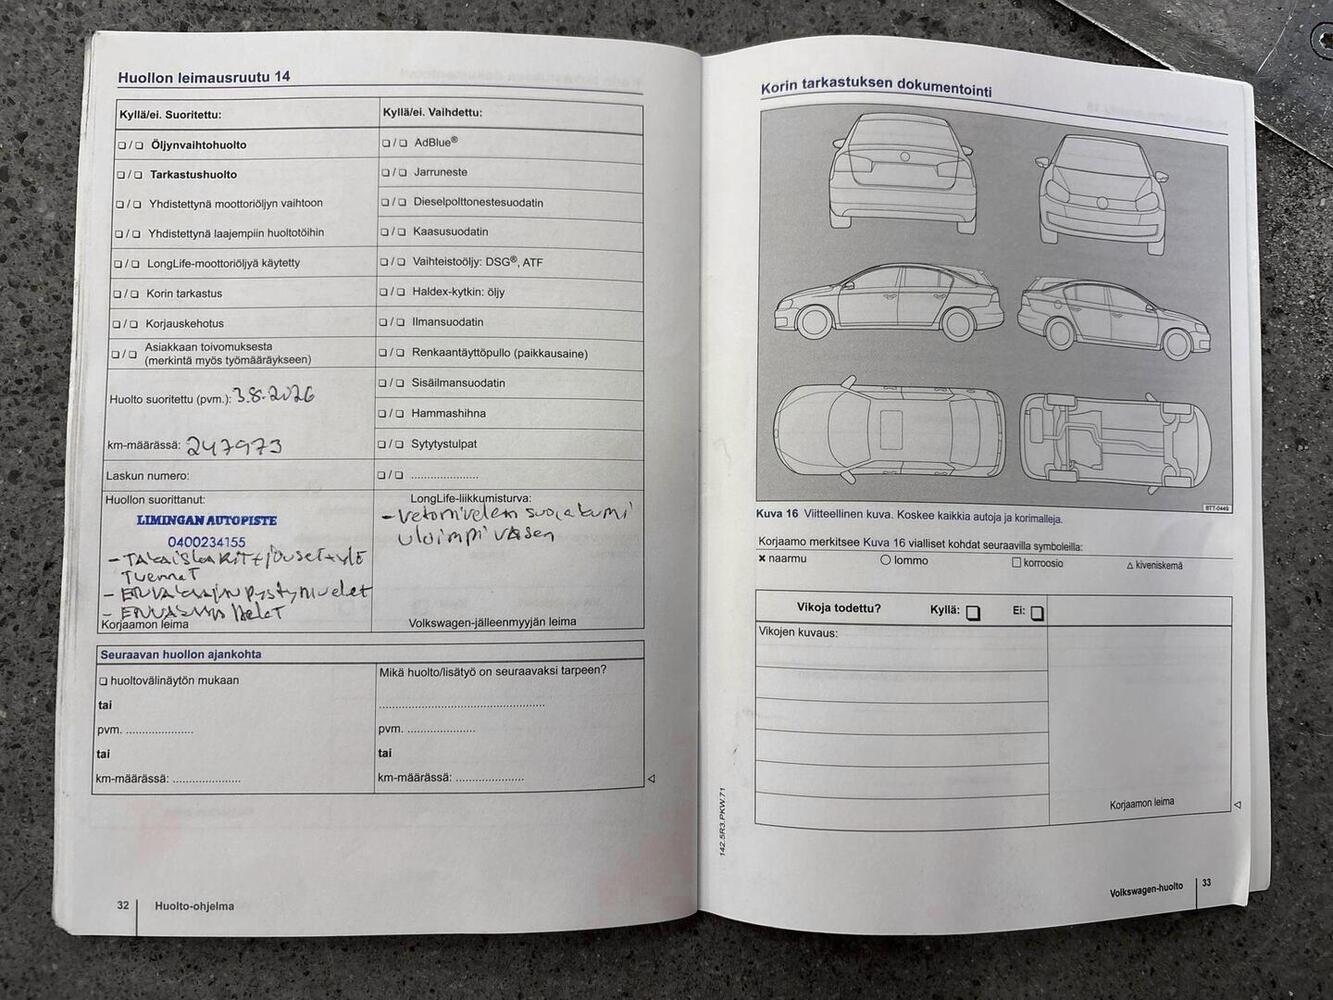 Huollon leimausruutu 14
Kyllä/ei. Suoritettu:
❏ / ❏ Öljynvaihtohuolto
❏ / ❏ Tarkastushuolto
❏ / ❏ Yhdistettynä moottoriöljyn vaihtoon
❏ / ❏ Yhdistettynä laajempiin huoltotöihin
❏ / ❏ LongLife-moottoriöljyä käytetty
❏ / ❏ Korin tarkastus
❏ / ❏ Korjauskehotus
❏ / ❏ Asiakkaan toivomuksesta
(merkintä myös työmääräykseen)
Huolto suoritettu (pvm.): 3.8.2026
km-määrässä: 247973
Laskun numero:
Huollon suorittanut:
LIMINGAN AUTOPISTE
0400234155
Korjaamon leima
Kyllä/ei. Vaihdettu:
❏ / ❏ AdBlue®
❏ / ❏ Jarruneste
❏ / ❏ Dieselpolttonestesuodatin
❏ / ❏ Kaasusuodatin
❏ / ❏ Vaihteistoöljy: DSG®, ATF
❏ / ❏ Haldex-kytkin: öljy
❏ / ❏ Ilmansuodatin
❏ / ❏ Renkaantäyttöpullo (paikkausaine)
❏ / ❏ Sisäilmansuodatin
❏ / ❏ Hammashihna
❏ / ❏ Sytytystulpat
❏ / ❏ ......................
LongLife-liikkumisturva:
- vetonivelen suojakumi
uloimpi vasen
Volkswagen-jälleenmyyjän leima
Seuraavan huollon ajankohta
❏ huoltovälinäytön mukaan
tai
pvm. ......................
tai
km-määrässä: ......................
Mikä huolto/lisätyö on seuraavaksi tarpeen?
......................................................
pvm. ......................
tai
km-määrässä: ......................
32 Huolto-ohjelma
Korin tarkastuksen dokumentointi
BTT-0449
Kuva 16 Viitteellinen kuva. Koskee kaikkia autoja ja korimalleja.
Korjaamo merkitsee Kuva 16 vialliset kohdat seuraavilla symboleilla:
× naarmu ○ lommo □ korroosio △ kiveniskemä
Vikoja todettu? Kyllä: ❏ Ei: ❏
Vikojen kuvaus:
Korjaamon leima
142.5R3.PKW.71
Volkswagen-huolto 33